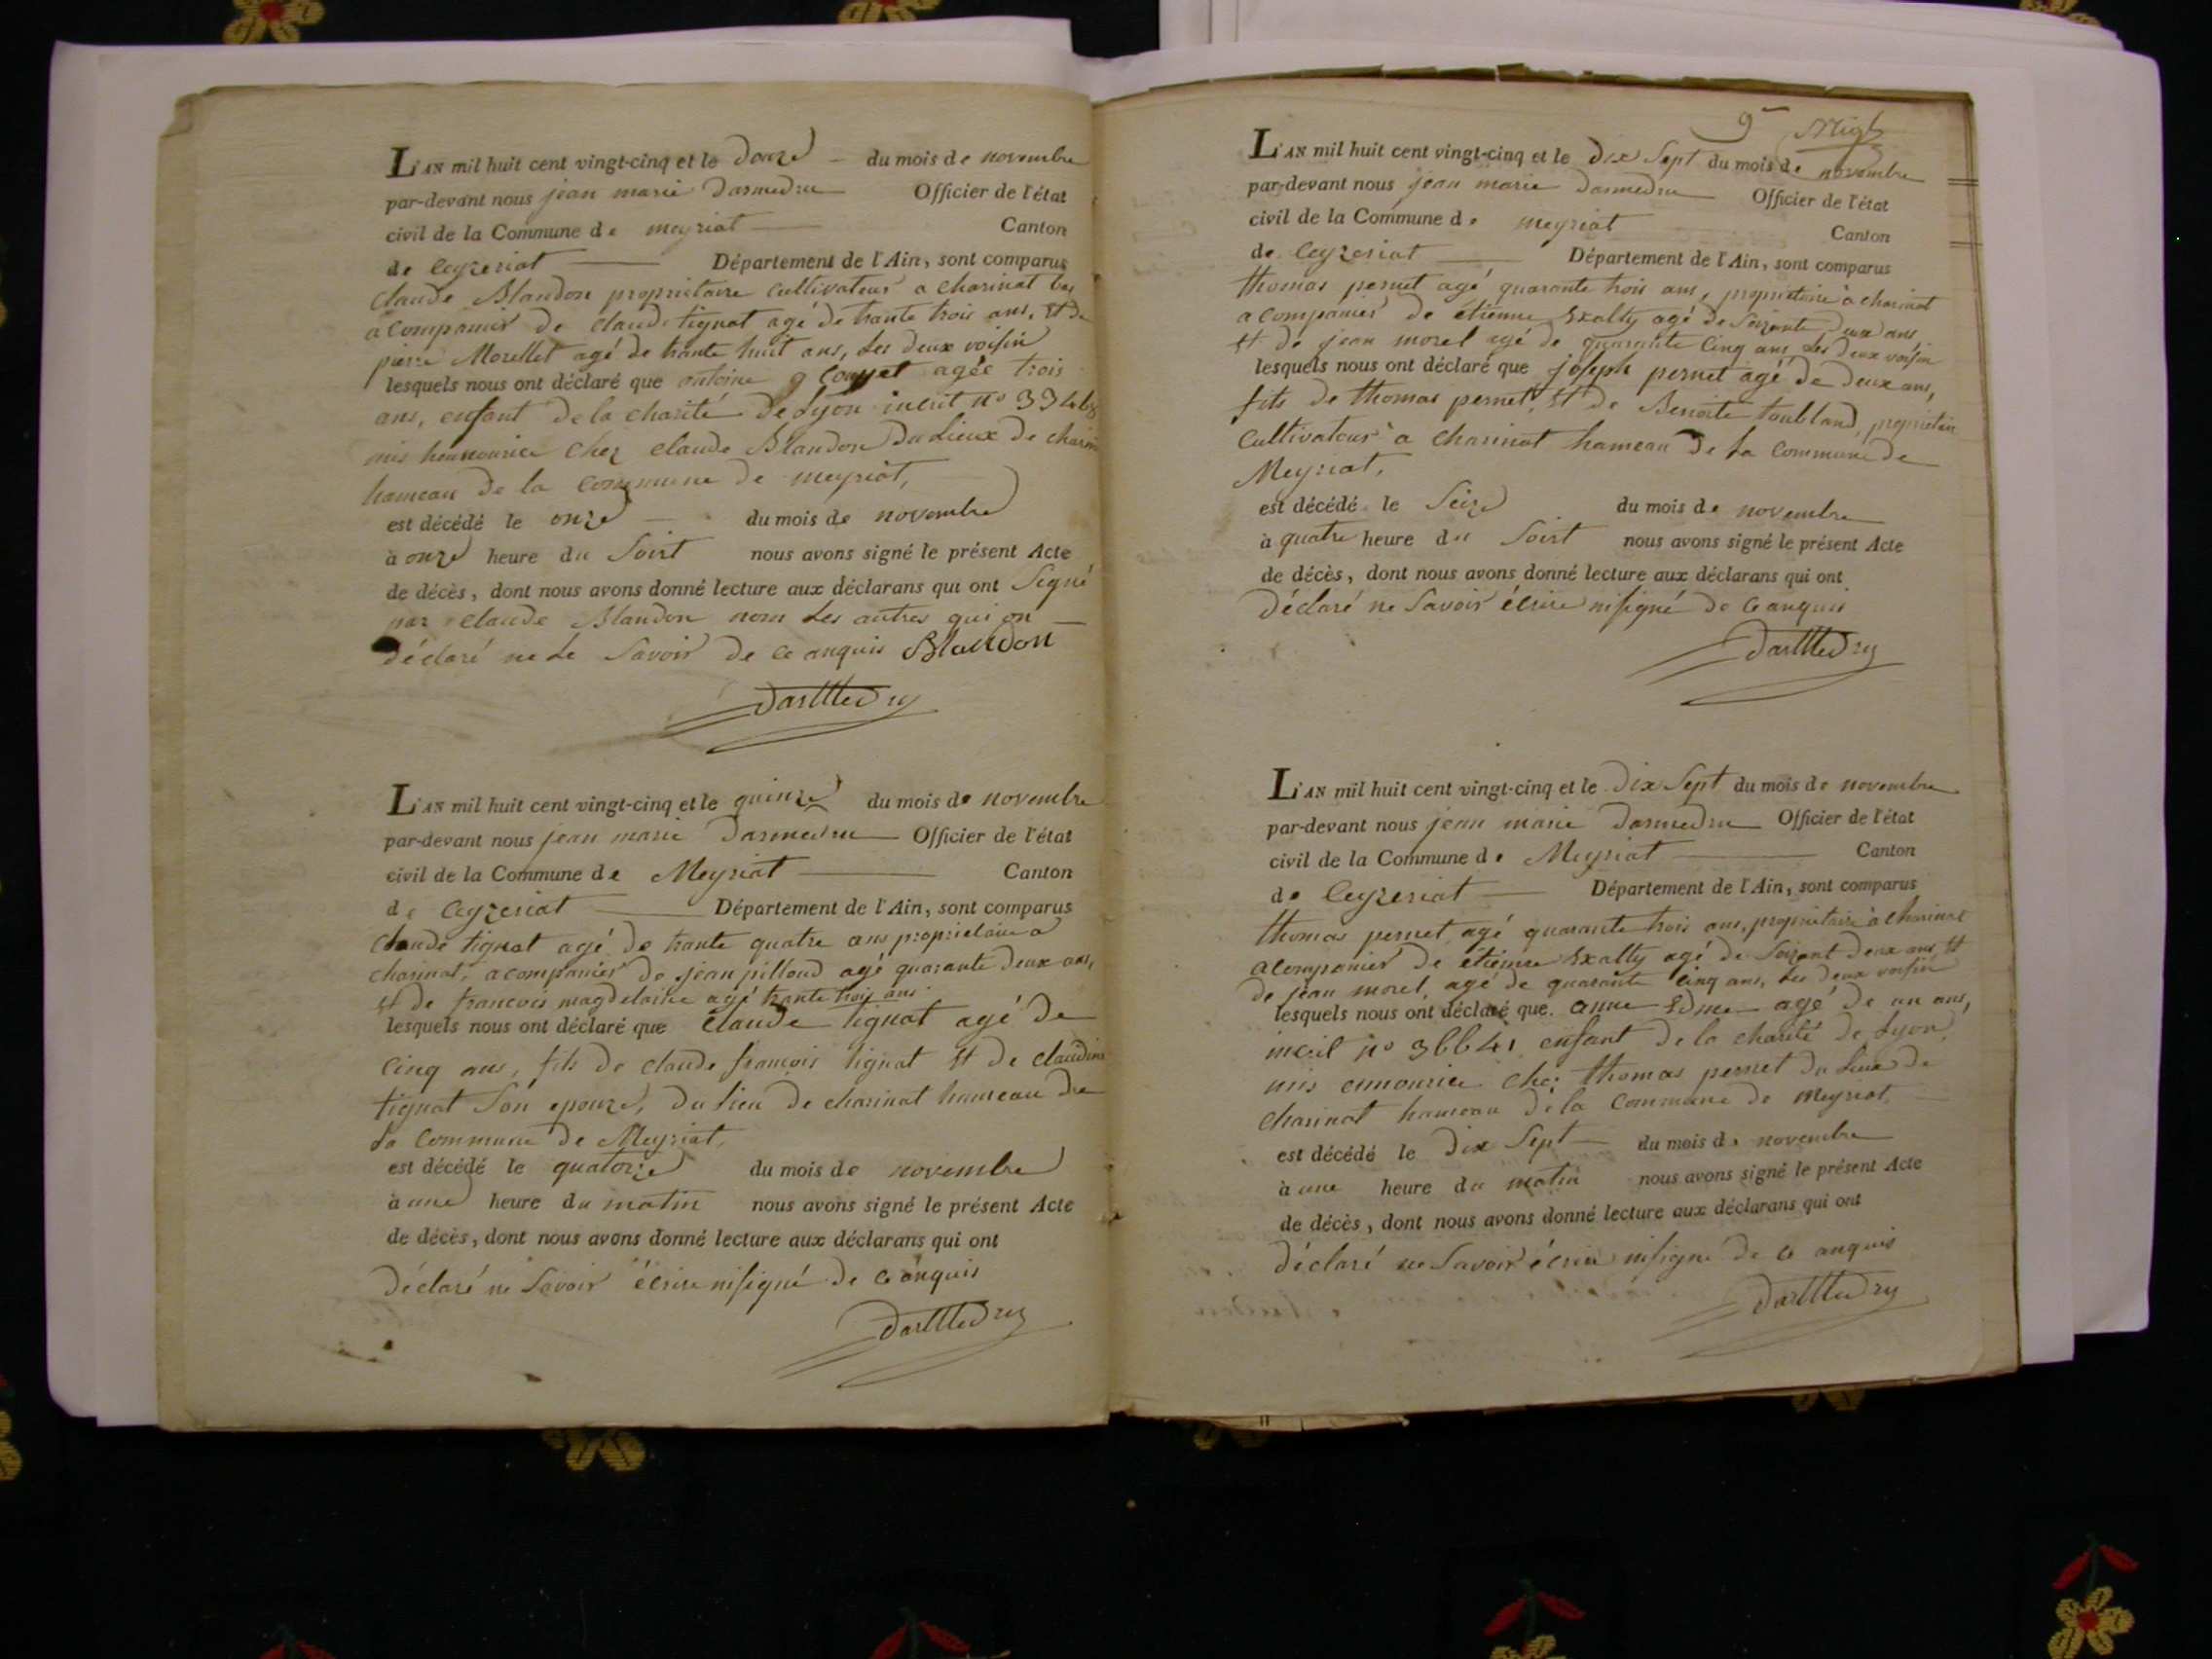 L'AN mil huit cent vingt-cinq et le douze du mois de novembre
par-devant nous jean marie Darmedru Officier de l'état
civil de la Commune de meyriat Canton
de Ceyzeriat Département de l'Ain, sont comparus
claude Blandon proprietaire cultivateur a charinat
acompanier de claude tignat agé de trante trois ans, et de
pierre Morellet agé de trante huit ans, les deux voisin
lesquels nous ont déclaré que antoine agée trois
ans, enfant de la charité de Lyon incrit n°
mis chez claude Blandon du Lieux de
hameau de la commune de meyriat,
est décédé le onze du mois de novembre
à onze heure du Soirt nous avons signé le présent Acte
de décès, dont nous avons donné lecture aux déclarans qui ont Segné
par claude Blandon nom Les autres qui on
déclaré ne Le Savoir de ce anquis Blandon
Darmedru
L'AN mil huit cent vingt-cinq et le quinze du mois de novembre
par-devant nous jean marie Darmedru Officier de l'état
civil de la Commune de Meyriat Canton
de Ceyzeriat Département de l'Ain, sont comparus
claude tignat agé de trante quatre ans proprietaire a
charinat, acompanier de jean pilloud agé quarante deux ans,
et de francois magdelaine agé trante trois ans
lesquels nous ont déclaré que claude tignat agé de
cinq ans, fils de claude françois tignat et de claudine
tignat Son epouze, du lieu de charinat hameau de
La Commune de Meyriat,
est décédé le quatorze du mois de novembre
à une heure du matin nous avons signé le présent Acte
de décès, dont nous avons donné lecture aux déclarans qui ont
déclaré ne Savoir écrire nisigné de ce anquis
Darmedru
9
L'AN mil huit cent vingt-cinq et le dix Sept du mois de novembre
par-devant nous jean marie Darmedru Officier de l'état
civil de la Commune de meyriat Canton
de Ceyzeriat Département de l'Ain, sont comparus
thomas pernet agé quarante trois ans, proprietaire a charinat
acompanier de étienne agé de Soizante deux ans
et de jean morel agé de quarante Cinq ans Les deux voisin
lesquels nous ont déclaré que joseph pernet agé de deux ans,
fils de thomas pernet, et de Benoite proprietaire
Cultivateur a charinat hameau de La Commune de
Meyriat,
est décédé le Seize du mois de novembre
à quatre heure du Soirt nous avons signé le présent Acte
de décès, dont nous avons donné lecture aux déclarans qui ont
déclaré ne Savoir écrire nisigné de ce anquis
Darmedru
L'AN mil huit cent vingt-cinq et le dix Sept du mois de novembre
par-devant nous jean marie Darmedru Officier de l'état
civil de la Commune de Meyriat Canton
de Ceyzeriat Département de l'Ain, sont comparus
thomas pernet agé quarante trois ans, proprietaire a charinat
acompanier de étienne agé de Soizant deux ans et
de jean morel, agé de quarante Cinq ans, Les deux voisin
lesquels nous ont déclaré que anne agé de un ans,
incrit n° 36641 enfant de la charité de Lyon
mis chez thomas pernet du Lieux de
charinat hameau de la Commune de Meyriat,
est décédé le dix Sept du mois de novembre
à une heure du matin nous avons signé le présent Acte
de décès, dont nous avons donné lecture aux déclarans qui ont
déclaré ne Savoir écrire nisigné de ce anquis
Darmedru